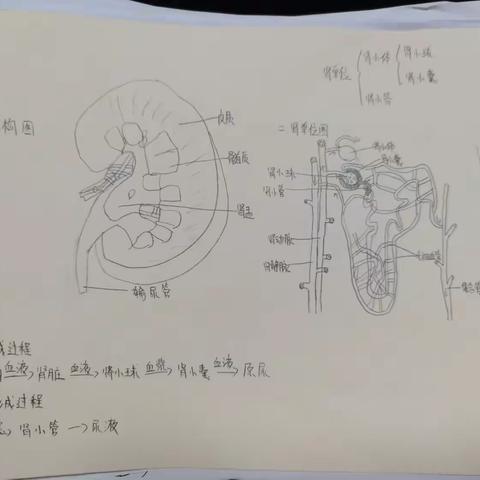 构图
皮质
髓质
肾盂
输尿管
肾单位
肾小体
肾小管
肾小球
肾小囊
二 肾单位图
肾小体
肾小囊
肾小球
肾小管
肾动脉
肾静脉
成过程
血液→肾脏 血液→肾小球 血浆→肾小囊 血液→原尿
成过程
肾小管→尿液